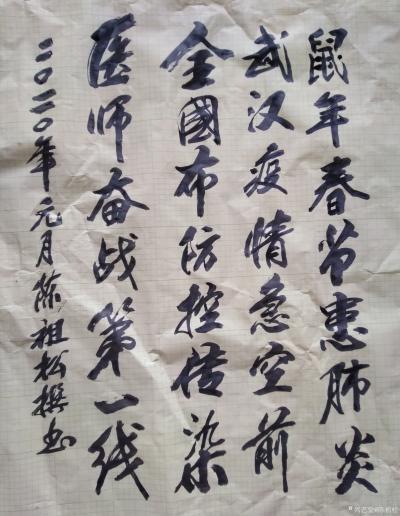 鼠年春节患肺炎
武汉疫情急空前
全國布防控传染
医师奋战第一线
二〇二〇年元月陈祖松撰书